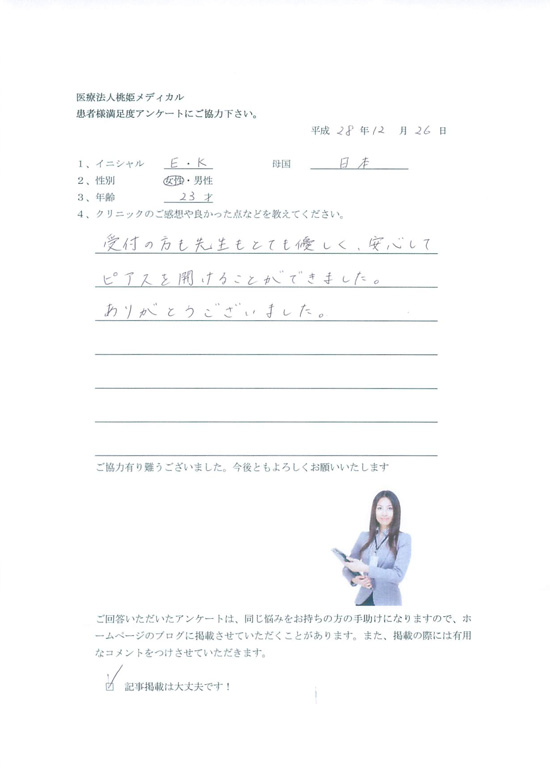 医療法人桃姫メディカル
患者様満足度アンケートにご協力下さい。
平成 28 年 12 月 26 日
1、イニシャル E・K 母国 日本
2、性別 女性・男性
3、年齢 23才
4、クリニックのご感想や良かった点などを教えてください。
受付の方も先生もとても優しく、安心して
ピアスを開けることができました。
ありがとうございました。
ご協力有り難うございました。今後ともよろしくお願いいたします
ご回答いただいたアンケートは、同じ悩みをお持ちの方の手助けになりますので、ホ
ームページのブログに掲載させていただくことがあります。また、掲載の際には有用
なコメントをつけさせていただきます。
☑ 記事掲載は大丈夫です！